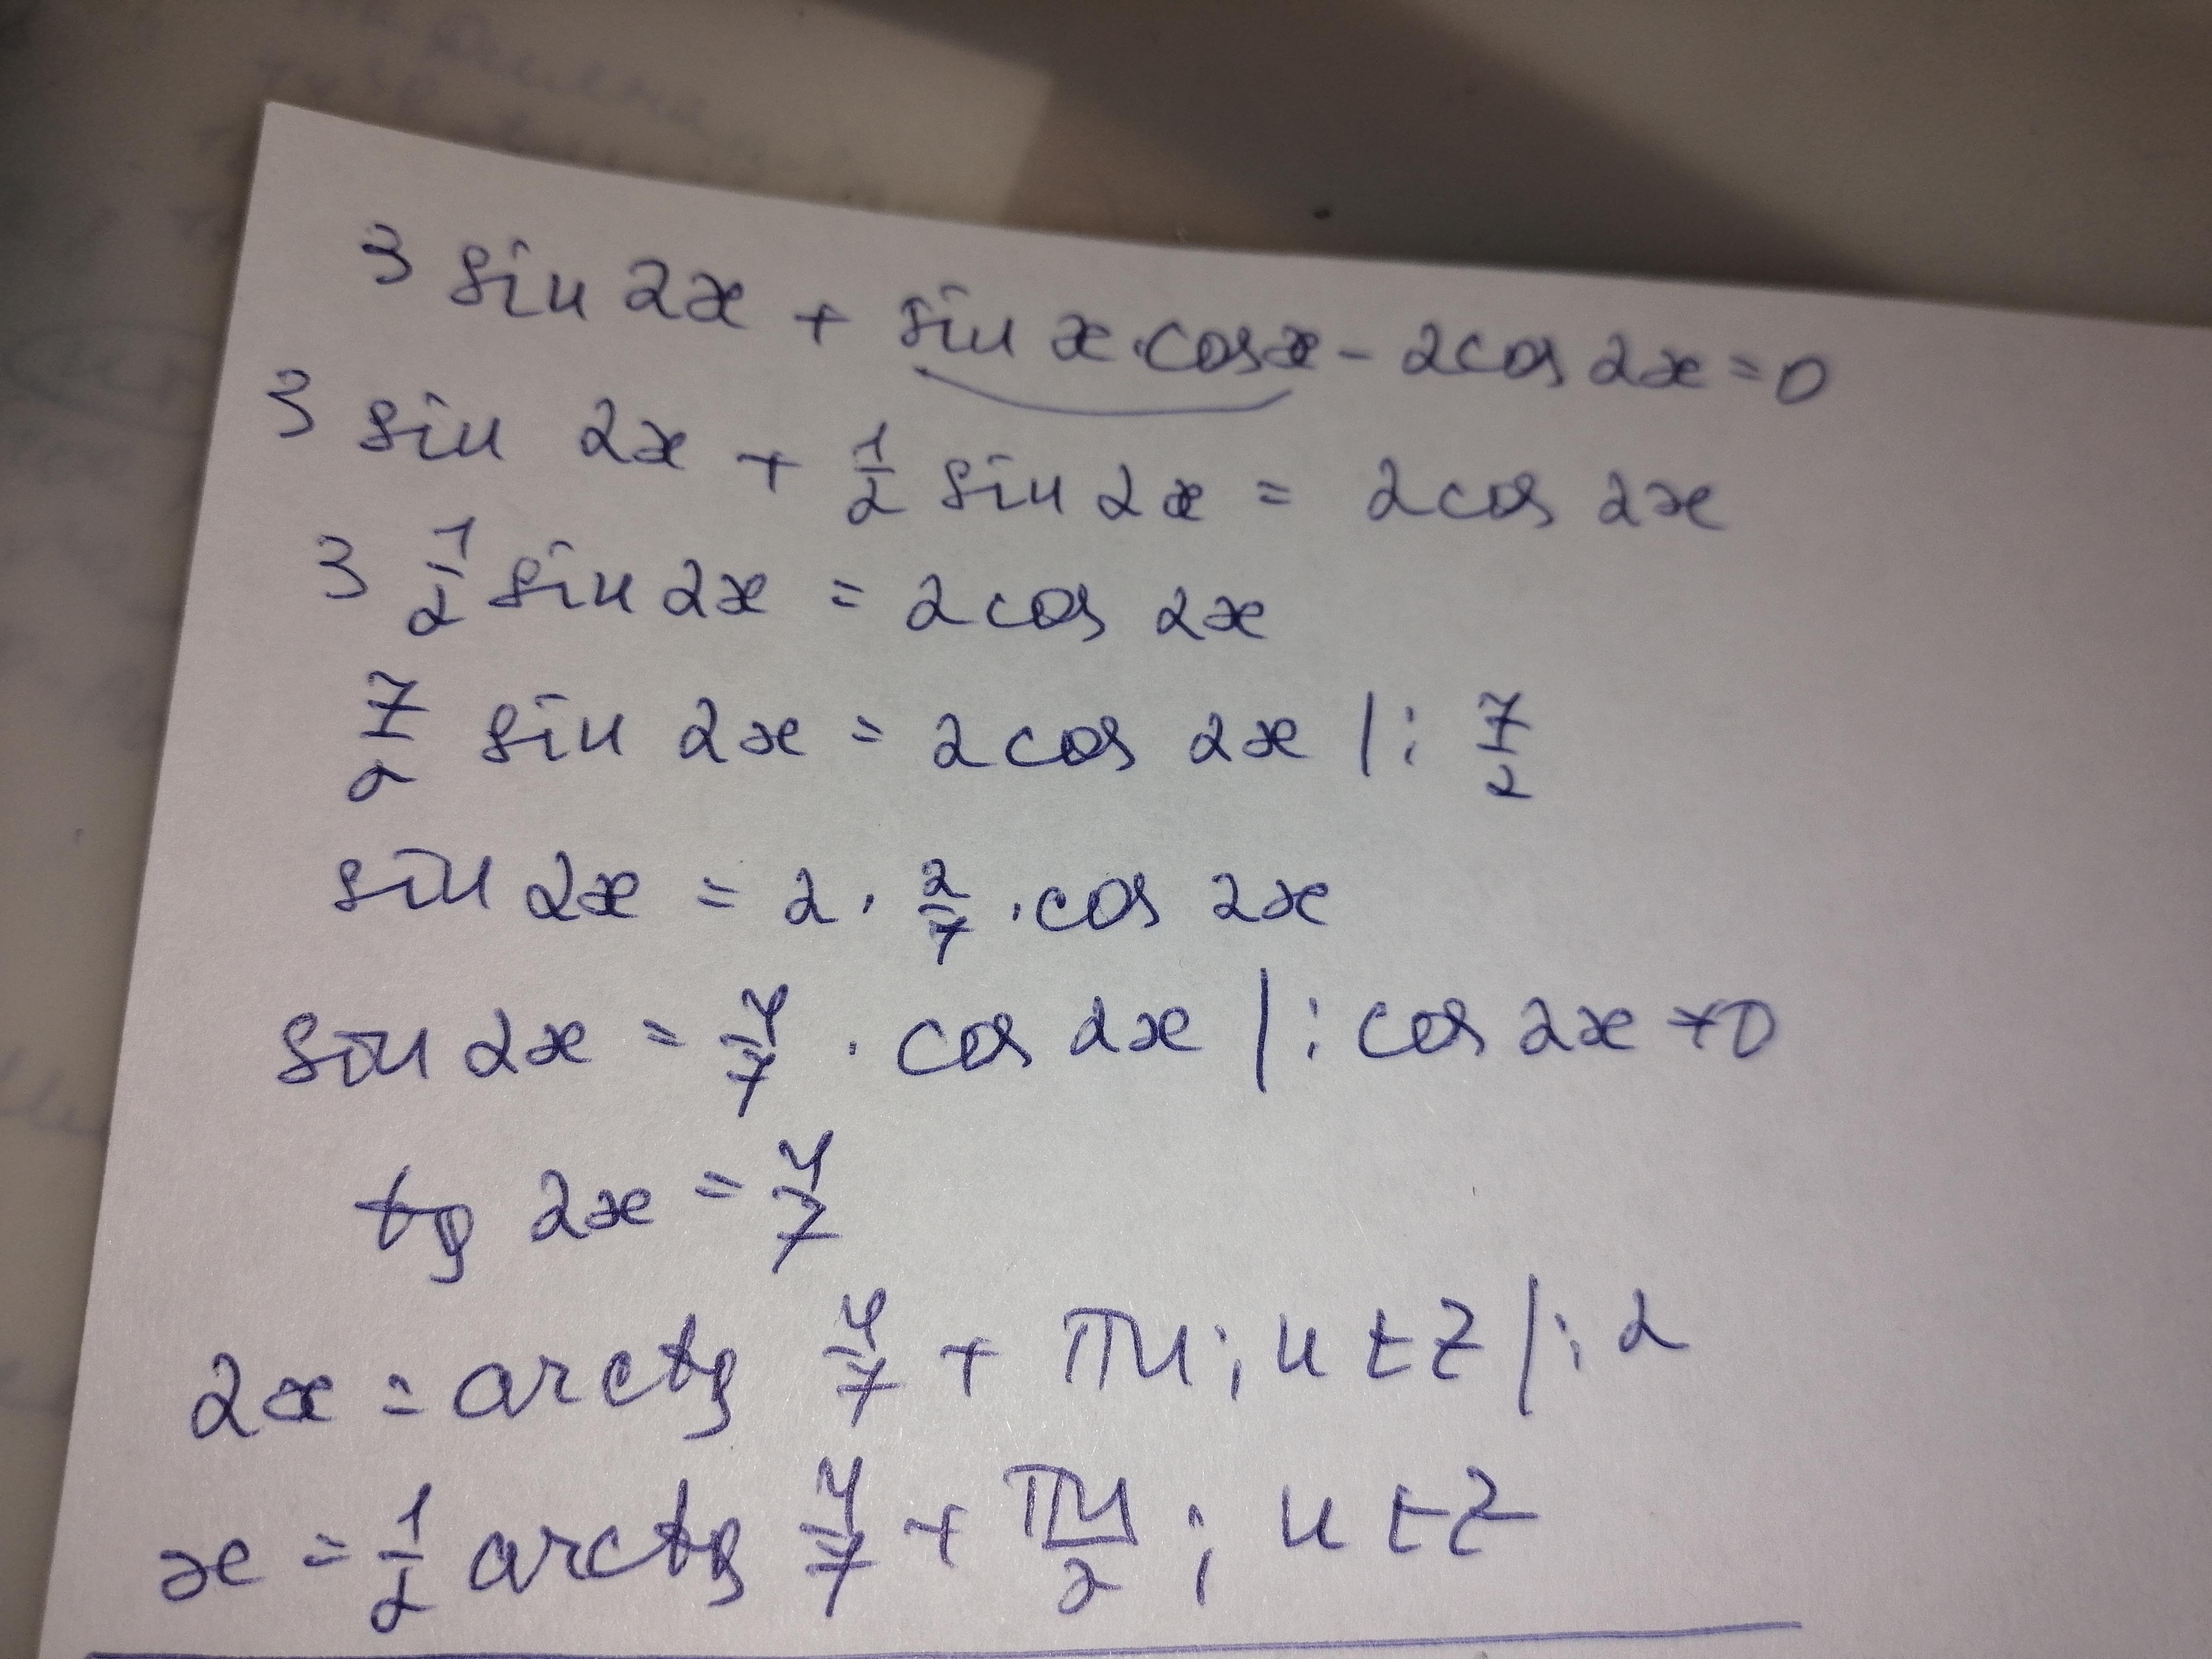 3 sin 2x + sin x · cos x - 2cos 2x = 0
3 sin 2x + 1/2 sin 2x = 2cos 2x
3 1/2 sin 2x = 2cos 2x
7/2 sin 2x = 2cos 2x | : 7/2
sin 2x = 2 · 2/7 · cos 2x
sin 2x = 4/7 · cos 2x | : cos 2x ≠ 0
tg 2x = 4/7
2x = arctg 4/7 + πn; n ∈ Z | : 2
x = 1/2 arctg 4/7 + πn/2; n ∈ Z